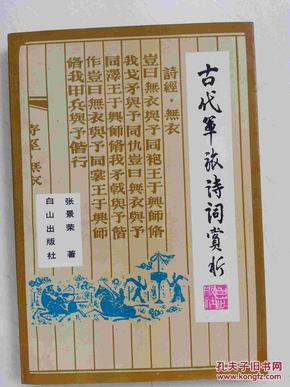 古代軍旅詩詞賞析
詩經·無衣
豈曰無衣與子同袍王于興師脩
我戈矛與子同仇豈曰無衣與子
同澤王于興師脩我矛戟與子偕
作豈曰無衣與子同裳王于興師
脩我甲兵與子偕行
张景荣 著
白山出版社
孔夫子旧书网